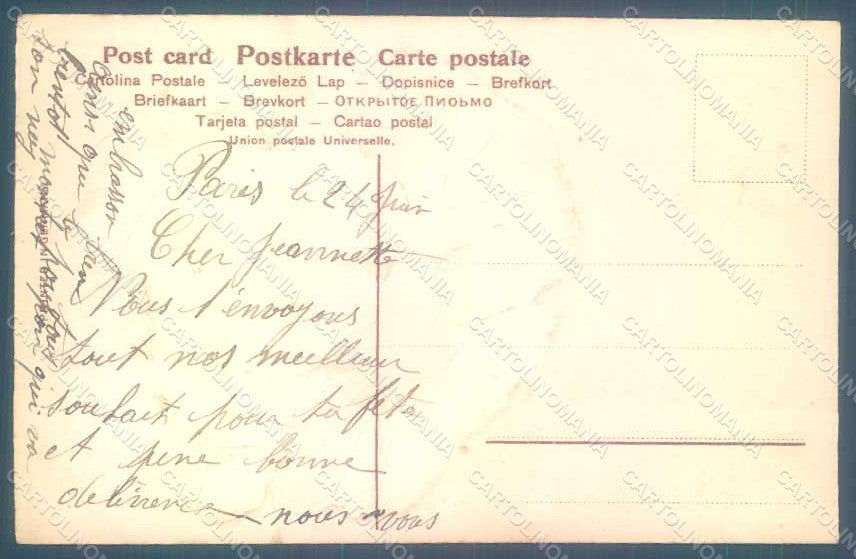 Post card Postkarte Carte postale
Cartolina Postale – Levelező Lap – Dopisnice – Brefkort
Briefkaart – Brevkort – ОТКРЫТОЕ ПИСЬМО
Tarjeta postal – Cartao postal
Union postale Universelle.
Paris le 24 Juin
Cher Jeannette
Nous t'envoyons
tout nos meilleur
souhait pour ta fête
et une bonne
delivrence nous vous
embrasson
bien que
bientot
ton qui va
CARTOLINOMANIA